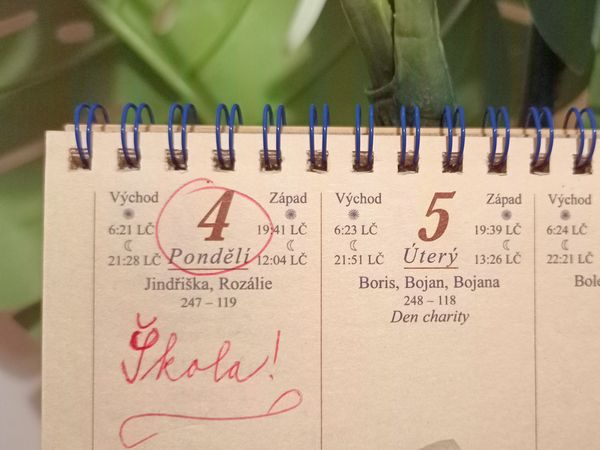 Východ 4 Západ
6:21 LČ 19:41 LČ
21:28 LČ Pondělí 12:04 LČ
Jindřiška, Rozálie
247 – 119
Škola!
Východ 5 Západ
6:23 LČ 19:39 LČ
21:51 LČ Úterý 13:26 LČ
Boris, Bojan, Bojana
248 – 118
Den charity
Východ
6:24 LČ
22:21 LČ